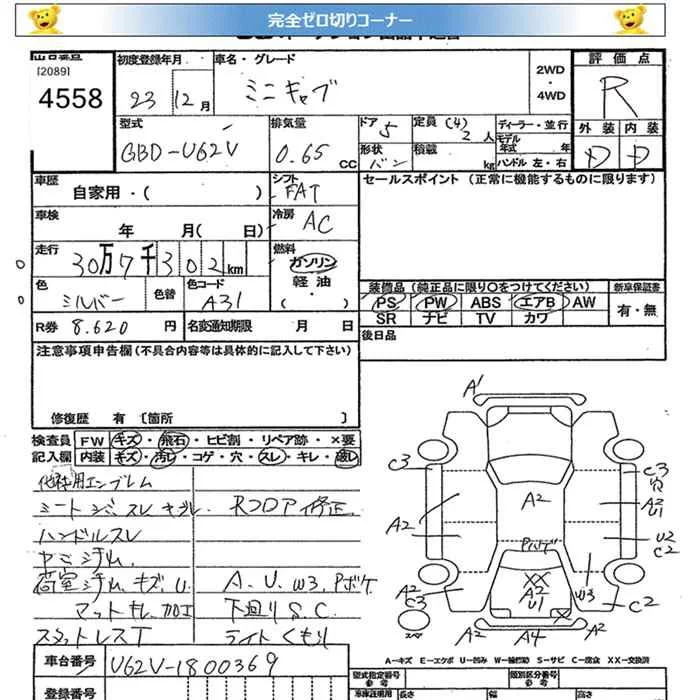 完全ゼロ切りコーナー
[2089]
4558
初度登録年月
23年 12月
車名・グレード
ミニキャブ
2WD
・
4WD
評価点
R
外装 内装
D D
型式
GBD-U62V
排気量
0.65 CC
ドア 5
形状 バン
定員 (4) 2 人
積載 kg
ディーラー・並行
モデル年式 年
ハンドル 左・右
車歴
自家用・( )
シフト
FAT
セールスポイント (正常に機能するものに限ります)
車検
年 月( 日)
冷房
AC
走行
30万7千302km
燃料
ガソリン
軽油
( ・ )
色
シルバー
色替
色コード
A31
装備品(純正品に限り○をつけてください)
新車保証書
PS PW ABS エアB AW
有・無
SR ナビ TV カワ
R券 8.620 円
名変通知期限 月 日
後日品
注意事項申告欄(不具合内容等は具体的に記入して下さい)
修復歴 有 [箇所 ]
検査員 FW キズ・飛石・ヒビ割・リペア跡・×要
記入欄 内装 キズ・汚レ・コゲ・穴・スレ・キレ・破レ
他社用エンブレム
シートシミ スレ キズ
Rフロア修正
ハンドルスレ
荷室 キズ.U.
A.U.W3.Pボケ
マットキレ 加工
下回りS.C.
ライトくもり
A'
C3
C3
A2
A2
U1
A2
U2
C2
Pボケ
XX
A2
U1
U3
A2
C3
C2
A2
A4
A2
A-キズ E-エクボ U-凹み W-補修跡 S-サビ C-腐食 XX-交換済
車台番号 U62V-1800369
登録番号
型式指定番号
参考
類別区分番号
参考
車庫証明用
長さ
幅
高さ